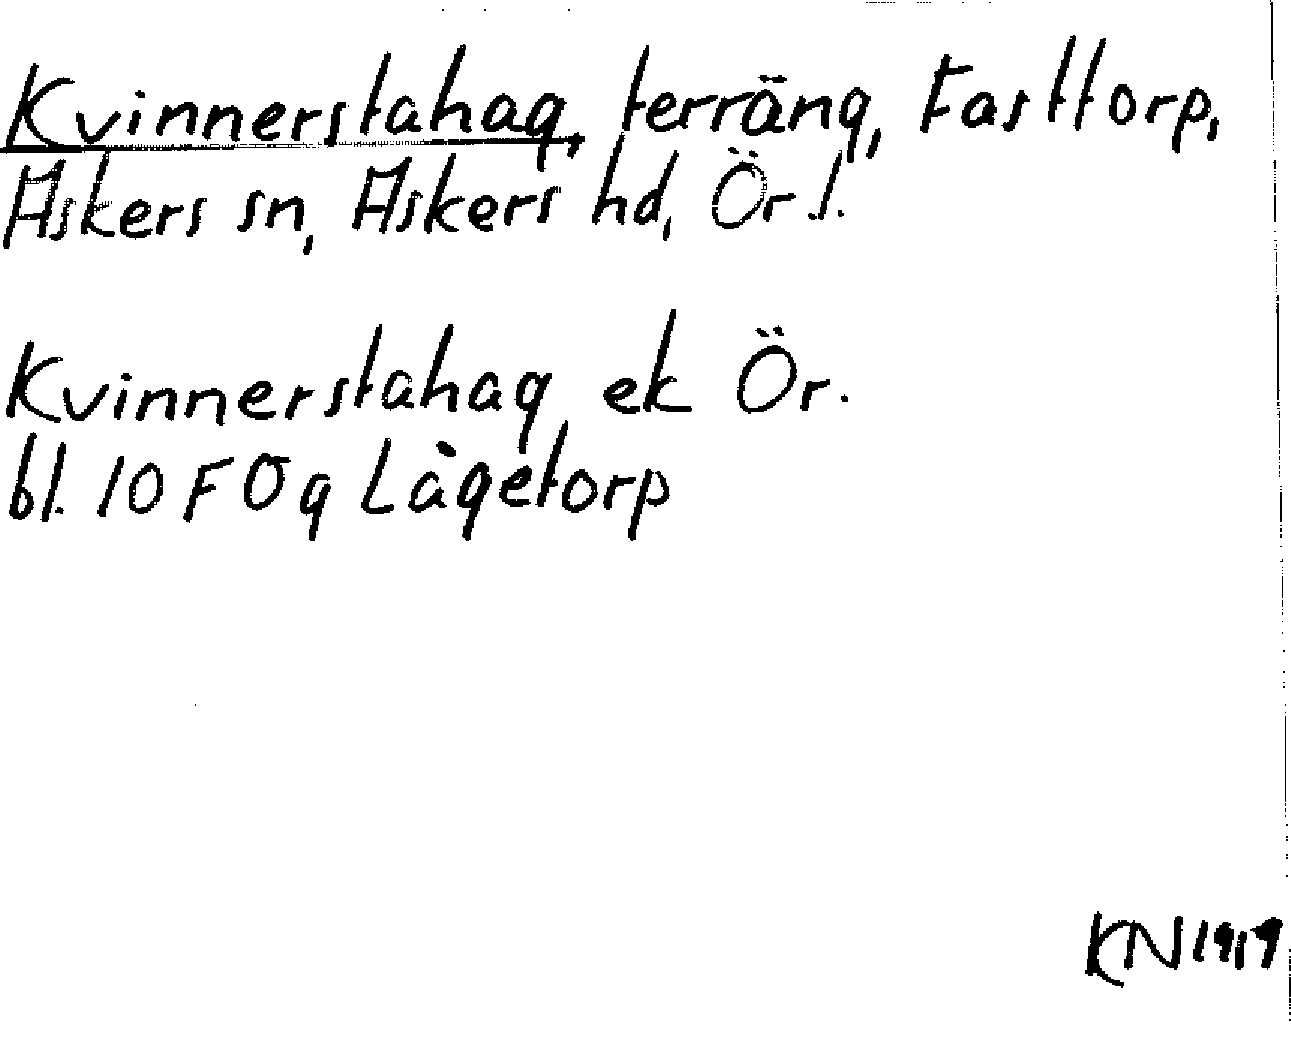 Kvinnerstahag, terräng, Fasttorp,
Askers sn, Askers hd, Ör.l.
Kvinnerstahag ek Ör.
bl. 10 F 0 g Lågetorp